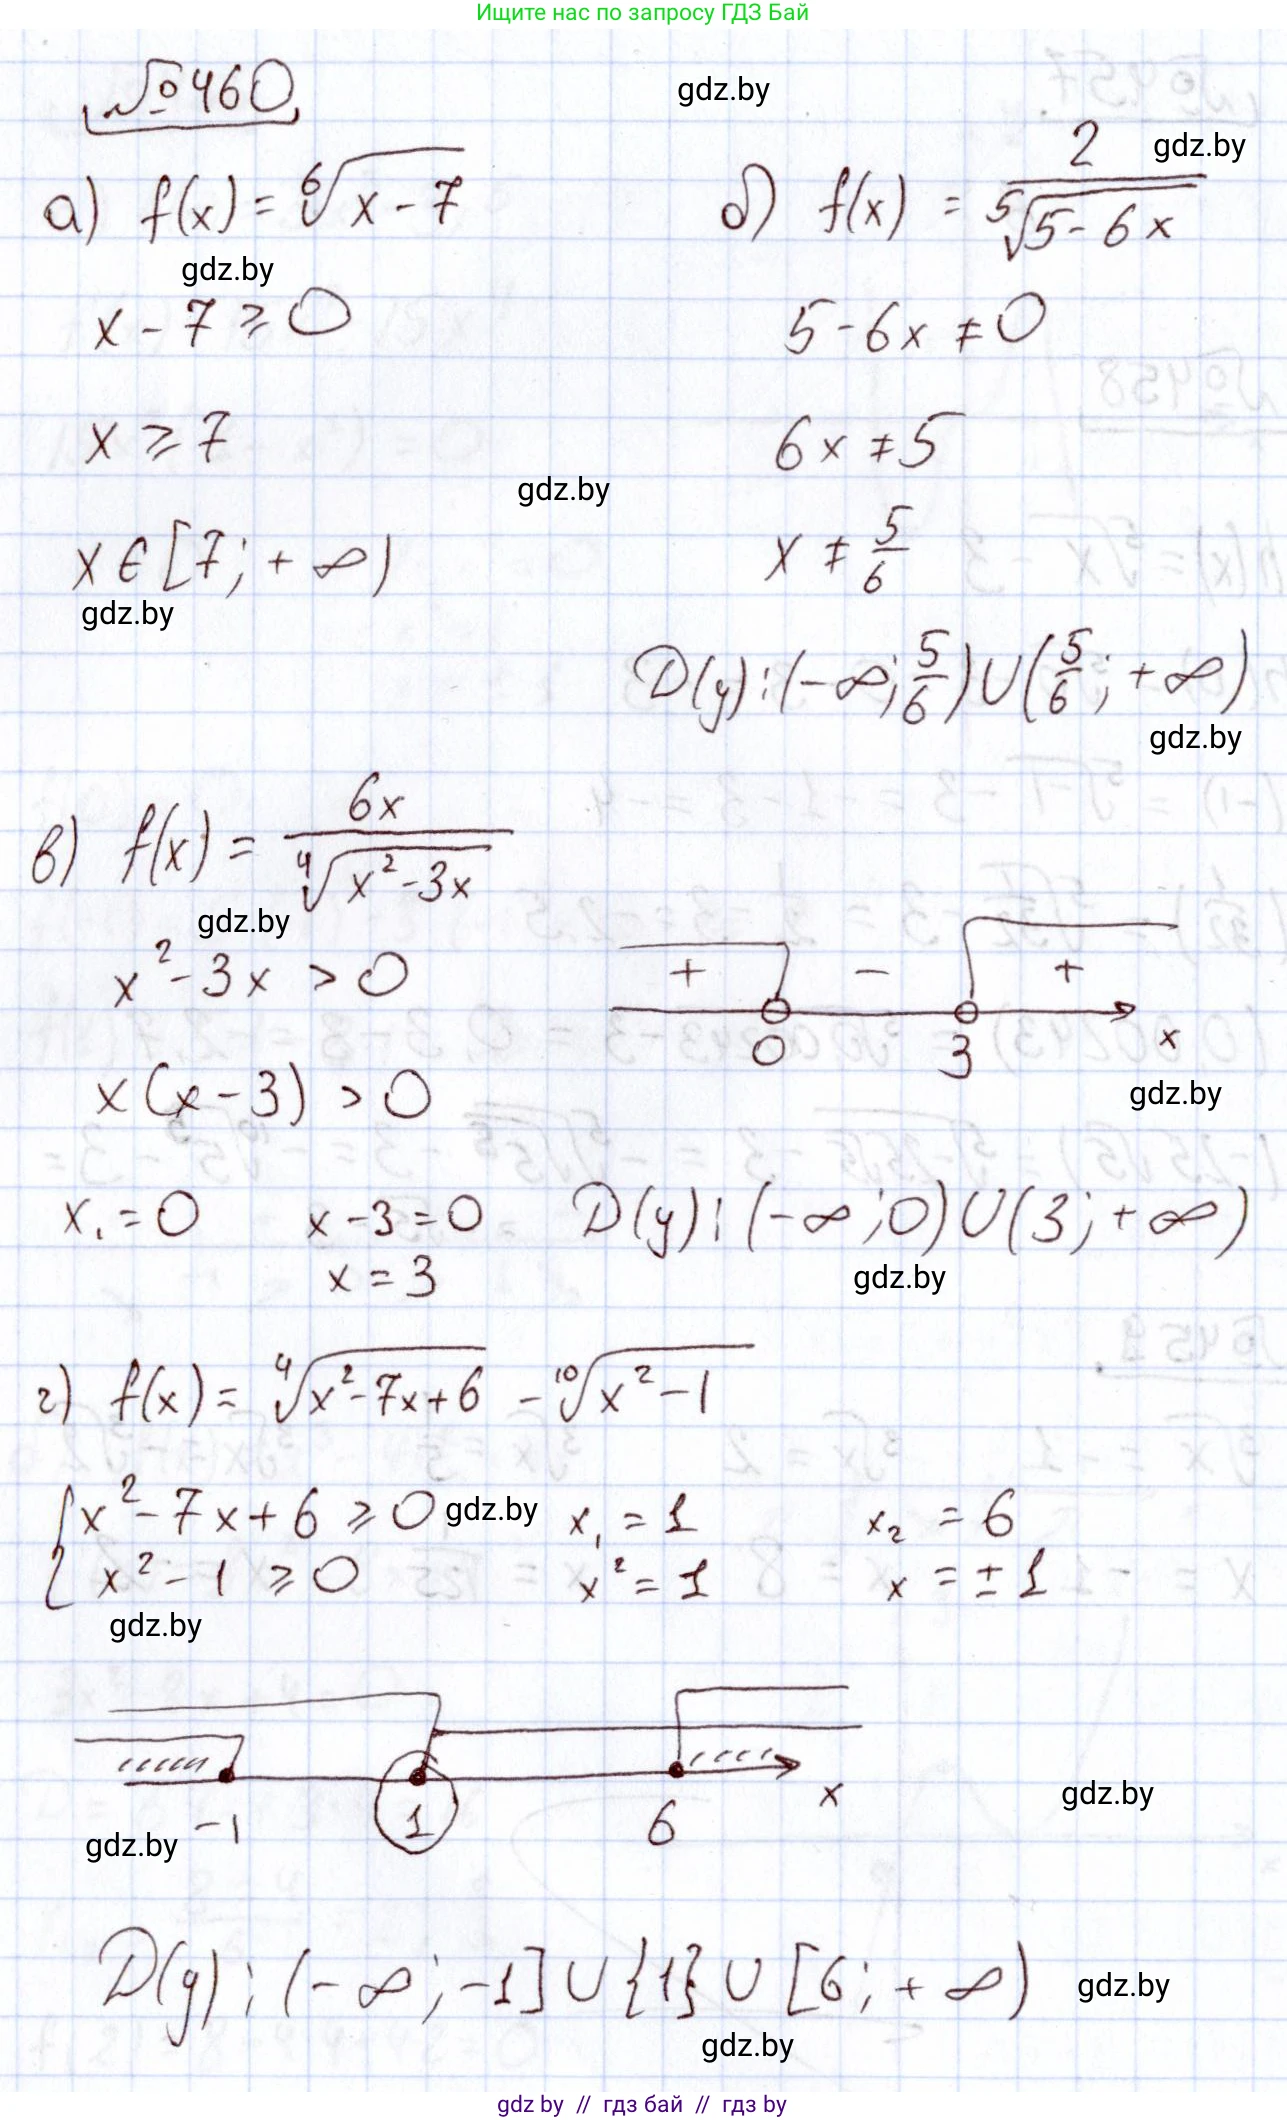 Ищите нас по запросу ГДЗ Бай
№460
gdz.by
а) f(x) = ⁶√(x - 7)
б) f(x) = 2 / ⁵√(5 - 6x)
gdz.by
gdz.by
x - 7 ⩾ 0
5 - 6x ≠ 0
x ⩾ 7
6x ≠ 5
gdz.by
x ∈ [7; + ∞)
x ≠ 5/6
gdz.by
D(y): (-∞; 5/6) ∪ (5/6; +∞)
gdz.by
в) f(x) = 6x / ⁴√(x² - 3x)
gdz.by
x² - 3x > 0
+ - +
0 3 x
x(x - 3) > 0
gdz.by
x₁ = 0 x - 3 = 0 D(y): (-∞; 0) ∪ (3; +∞)
x = 3
gdz.by
г) f(x) = ⁴√(x² - 7x + 6) - ¹⁰√(x² - 1)
{ x² - 7x + 6 ⩾ 0 gdz.by x₁ = 1 x₂ = 6
x² - 1 ⩾ 0 x² = 1 x = ± 1
gdz.by
-1 1 6 x
gdz.by
gdz.by
D(y): (-∞; -1] ∪ {1} ∪ [6; +∞)
gdz.by
gdz.by
gdz by // гдз бай // gdz by